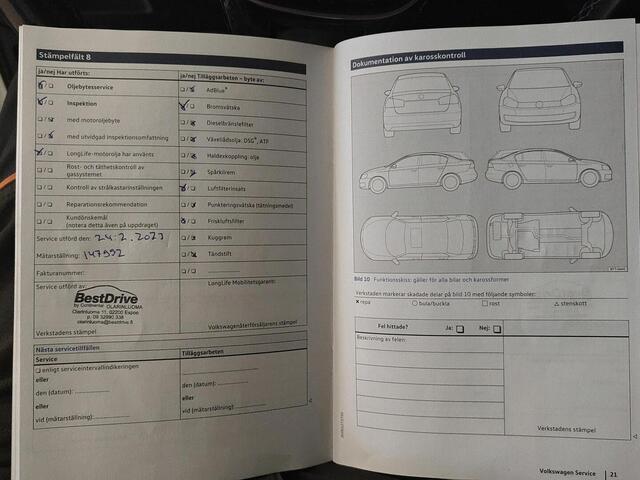 Stämpelfält 8
ja/nej Har utförts:
Oljebytesservice
Inspektion
med motoroljebyte
med utvidgad inspektionsomfattning
LongLife-motorolja har använts
Rost- och täthetskontroll av
gassystemet
Kontroll av strålkastarinställningen
Reparationsrekommendation
Kundönskemål
(notera detta även på uppdraget)
Service utförd den: 24.2.2023
Mätarställning: 147992
Fakturanummer:
Service utförd av:
BestDrive
by Continental OLARINLUOMA
Olarinluoma 11, 02200 Espoo
p. 09 32990 338
olarinluoma@bestdrive.fi
Verkstadens stämpel
ja/nej Tilläggsarbeten – byte av:
AdBlue®
Bromsvätska
Dieselbränslefilter
Växellådsolja: DSG®, ATF
Haldexkoppling: olja
Spårkilrem
Luftfilterinsats
Punkteringsvätska (tätningsmedel)
Friskluftsfilter
Kuggrem
Tändstift
LongLife Mobilitetsgaranti:
Volkswagenåterförsäljarens stämpel
Nästa servicetillfällen
Service
enligt serviceintervallindikeringen
eller
den (datum):
eller
vid (mätarställning):
Tilläggsarbeten
den (datum):
eller
vid (mätarställning):
Dokumentation av karosskontroll
Bild 10 Funktionsskiss: gäller för alla bilar och karossformer
Verkstaden markerar skadade delar på bild 10 med följande symboler:
× repa ○ bula/buckla □ rost △ stenskott
Fel hittade? Ja: Nej:
Beskrivning av felen:
Verkstadens stämpel
Volkswagen Service 21